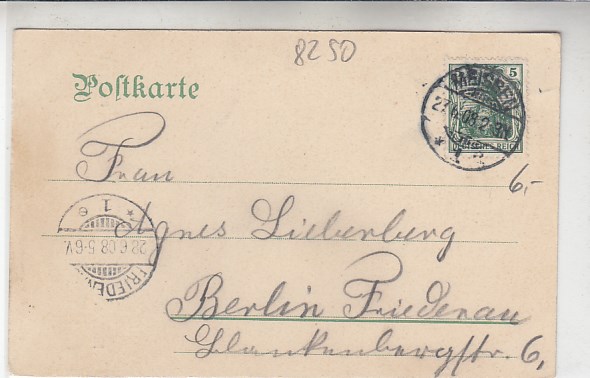 8250
Postkarte
5
MEISSEN
27.6.08.2-3N
DEUTSCHES REICH
Frau
6,-
1 e
Agnes Lieberberg
28.6.08.5-6V.
FRIEDENAU
Berlin Friedenau
Blankenbergstr. 6,